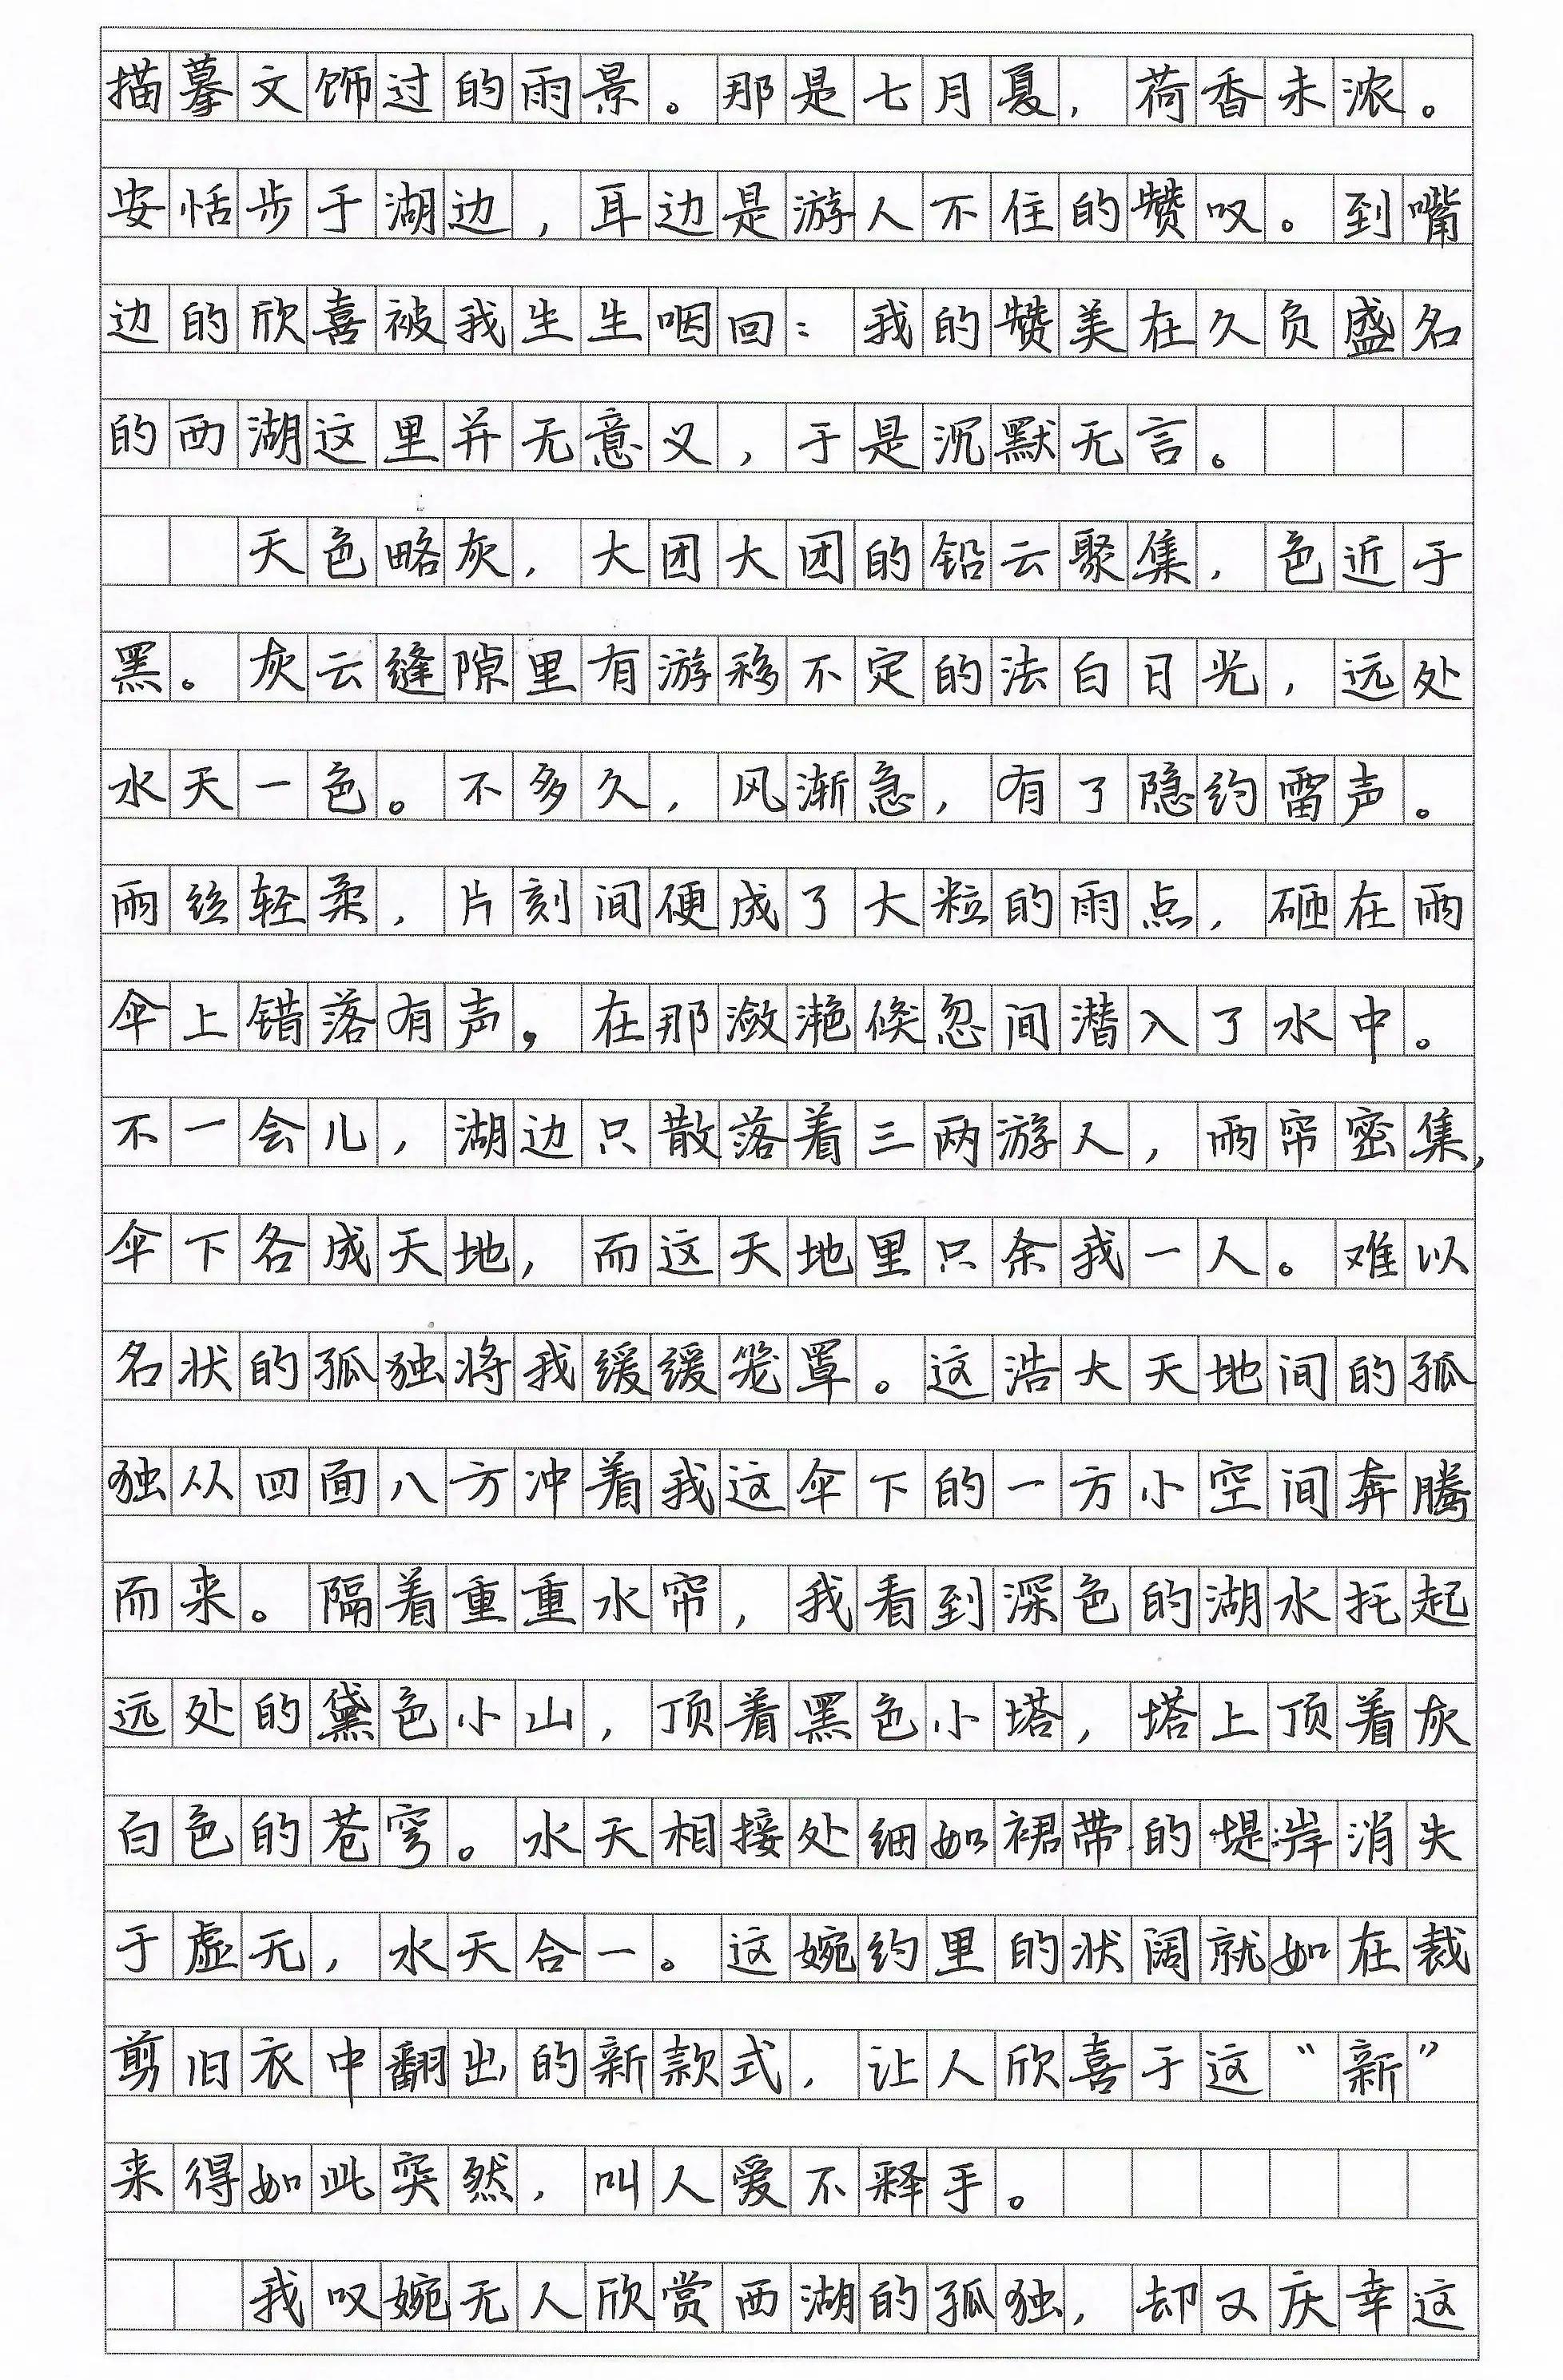 描摹文饰过的雨景。那是七月夏，荷香未浓。
安恬步于湖边，耳边是游人不住的赞叹。到嘴
边的欣喜被我生生咽回：我的赞美在久负盛名
的西湖这里并无意义，于是沉默无言。
天色略灰，大团大团的铅云聚集，色近于
黑。灰云缝隙里有游移不定的法白日光，远处
水天一色。不多久，风渐急，有了隐约雷声。
雨丝轻柔，片刻间便成了大粒的雨点，砸在雨
伞上错落有声，在那潋滟倏忽间潜入了水中。
不一会儿，湖边只散落着三两游人，雨帘密集，
伞下各成天地，而这天地里只余我一人。难以
名状的孤独将我缓缓笼罩。这浩大天地间的孤
独从四面八方冲着我这伞下的一方小空间奔腾
而来。隔着重重水帘，我看到深色的湖水托起
远处的黛色小山，顶着黑色小塔，塔上顶着灰
白色的苍穹。水天相接处细如裙带的堤岸消失
于虚无，水天合一。这婉约里的状阔就如在裁
剪旧衣中翻出的新款式，让人欣喜于这“新”
来得如此突然，叫人爱不释手。
我叹婉无人欣赏西湖的孤独，却又庆幸这